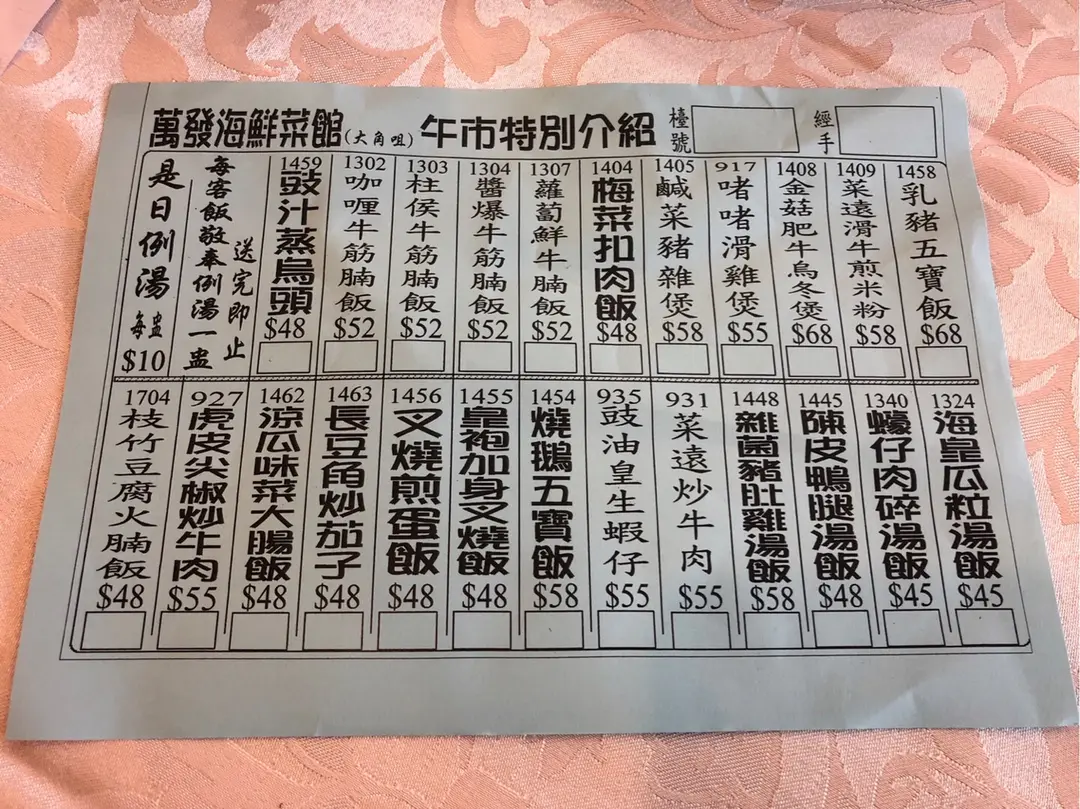 萬發海鮮菜館(大角咀) 午市特別介紹 檯號 經手
1458 乳豬五寶飯 $68
1409 菜遠滑牛煎米粉 $58
1408 金菇肥牛烏冬煲 $68
917 啫啫滑雞煲 $55
1405 鹹菜豬雜煲 $58
1404 梅菜扣肉飯 $48
1307 蘿蔔鮮牛腩飯 $52
1304 醬爆牛筋腩飯 $52
1303 柱侯牛筋腩飯 $52
1302 咖喱牛筋腩飯 $52
1459 豉汁蒸烏頭 $48
送完即止
每客飯敬奉例湯一盅
是日例湯 每盅 $10
1324 海皇瓜粒湯飯 $45
1340 蠔仔肉碎湯飯 $45
1445 陳皮鴨腿湯飯 $48
1448 雜菌豬肚雞湯飯 $58
931 菜遠炒牛肉 $55
935 豉油皇生蝦仔 $55
1454 燒鵝五寶飯 $58
1455 皇袍加身叉燒飯 $48
1456 叉燒煎蛋飯 $48
1463 長豆角炒茄子 $48
1462 涼瓜味菜大腸飯 $48
927 虎皮尖椒炒牛肉 $55
1704 枝竹豆腐火腩飯 $48